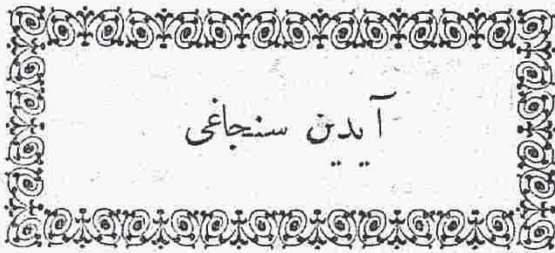 آیدین سنجاغی